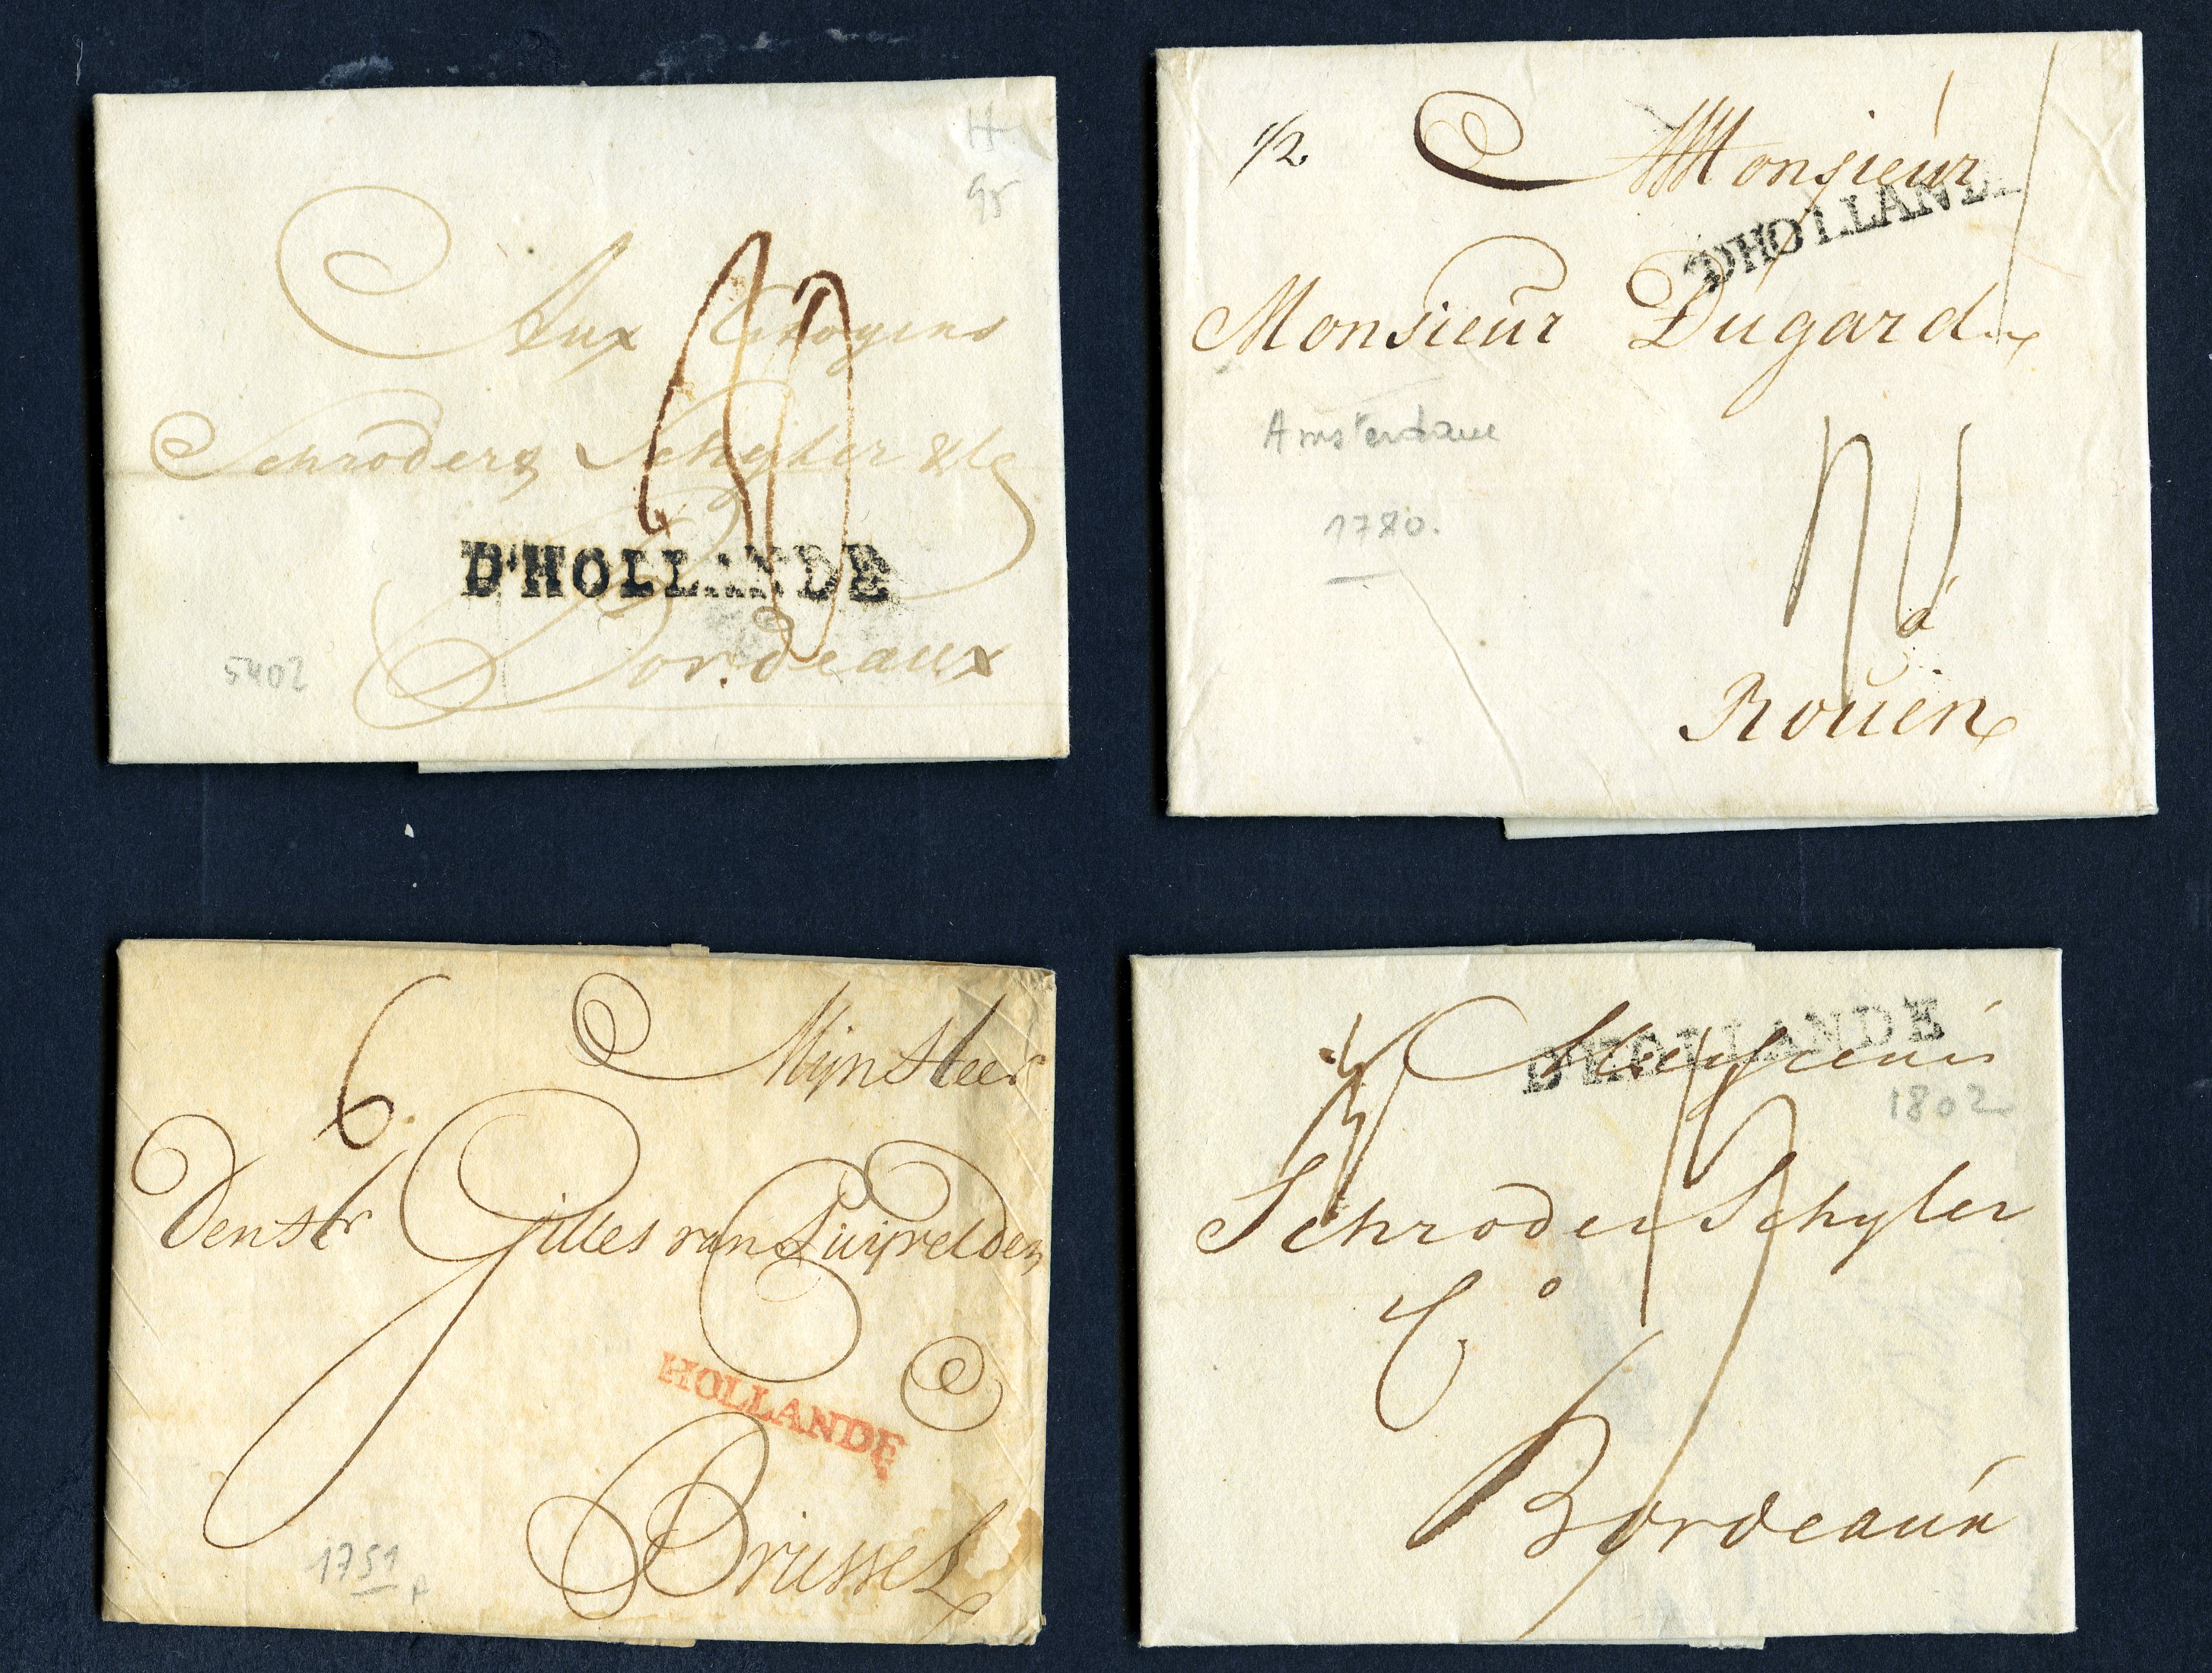 95
Aux Citoyens
Schröders Schyler & Co
D'HOLLANDE
Bordeaux
5402
1/2.
Monsieur
DHOLLANDE
Monsieur Dugard
Amsterdam
1780.
à
Rouen
6.
Mijn Heer
Den Hr Gilles van
HOLLANDE
Brussel
1751
D'HOLLANDE
Messieurs
1802
Schroder Schyler
Co
Bordeaux